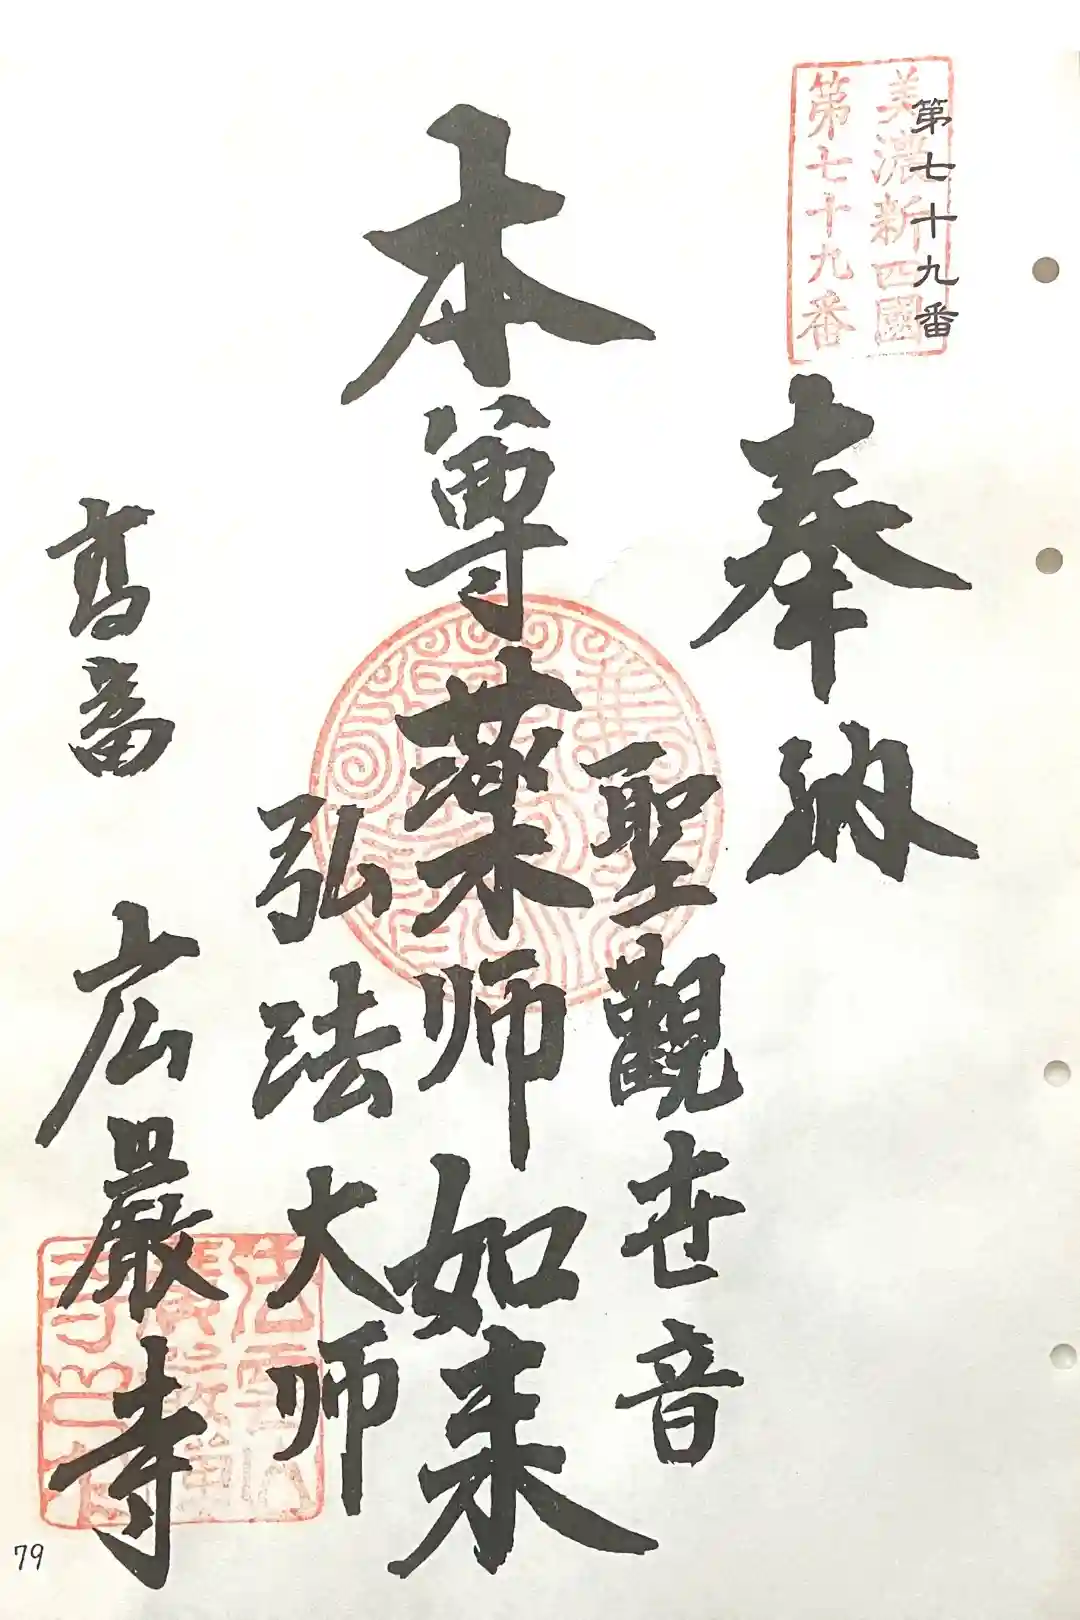 第七十九番
美濃新四國
第七十九番
奉納
聖觀世音
本尊薬师如来
弘法大师
高畨
広嚴寺
79